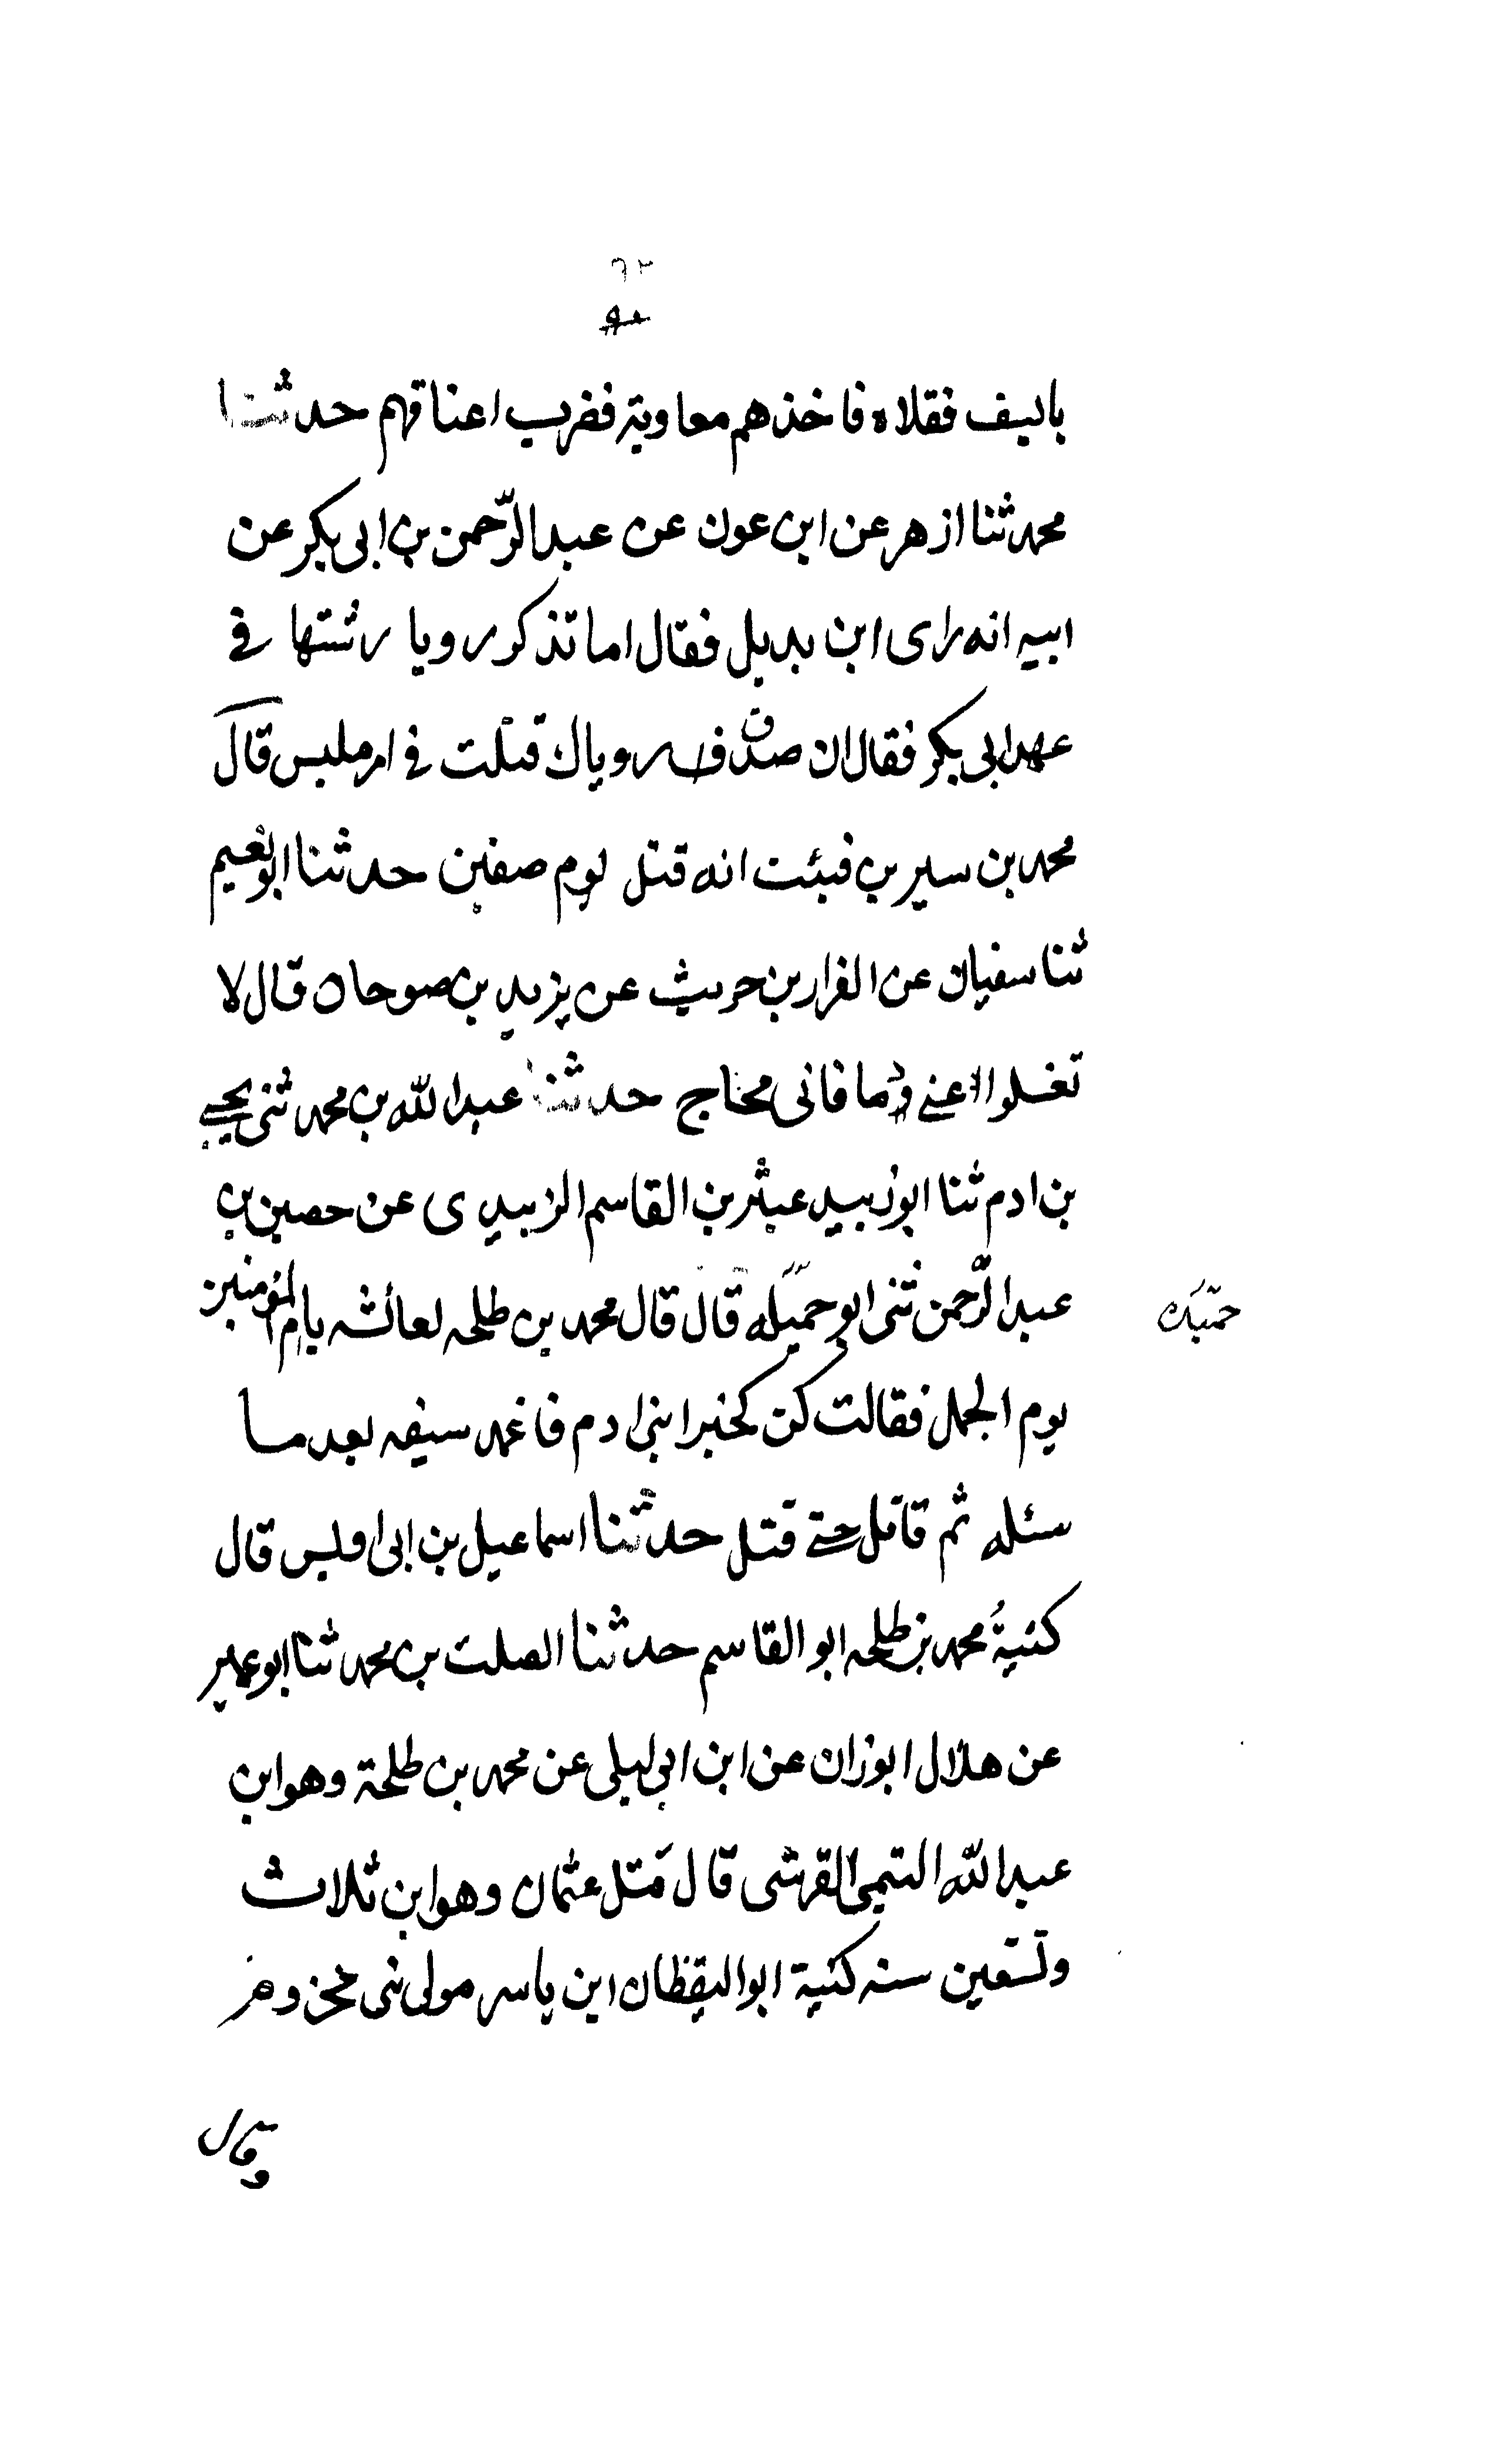 ٦٢
باليف فقلاه فاخذهم معاوية فضرب اعناقهم حدثنا
محمد ثنا ازهر عن ابن عون عن عبد الرّحمن بن ابى بكر عن
ابيه انه راى ابن بديل فقال اما تذكر رويا رئتها فى
عهد ابى بكر فقال ان صدق روياك قتلت فى امر ملبس قال
محمد بن سيرين فنبئت انه قتل يوم صفين حدثنا ابو نعيم
ثنا سفيان عن الغرار بن حريث عن يزيد بن صوحان قال لا
تغسلوا عنى دما فانى محاج حدثنا عبد اللّه بن محمد ثنى يحيى
بن ادم ثنا ابو زبيد عبثر بن القاسم الزبيدى عن حصين بن
عبد الرّحمن ثنى ابو حميّله قال قال محمد بن طلحه لعائشه يا ام المؤمنين
حمّيله
يوم الجمل فقالت كن كخير ابنى ادم فاغمد سيفه بعد ما
سئله ثم قاتل حتى قتل حدثنا اسماعيل بن ابى اويس قال
كنيةُ محمد بن طلحه ابو القاسم حدثنا الصلت بن محمد ثنا ابو عمير
عن هلال ابوزان عن ابن ابى ليلى عن محمد بن طلحة وهو ابن
عبد اللّه التيمى القرشى قال قتل عثمان وهو ابن ثلاث
وتسعين سنه كنية ابو اليقظان ابن ياسر مولى بنى مخزوم
وقال